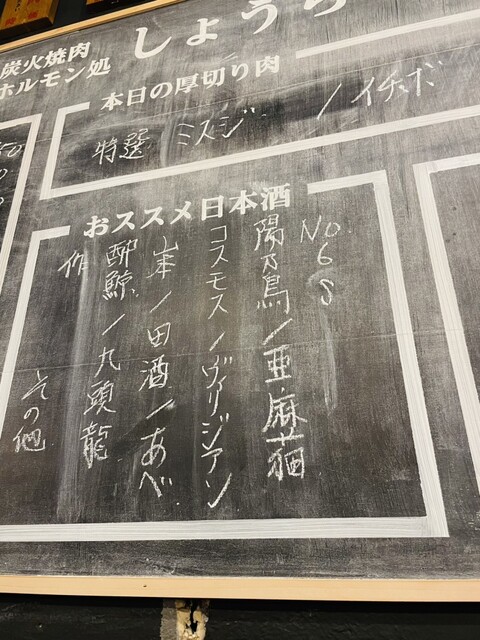 炭火焼肉
ホルモン処
しょうら
本日の厚切り肉
特選 ミスジ / イチボ
おススメ日本酒
No.6 S
陽乃鳥 / 亜麻猫
コスモス / ヴィリジアン
山本 / 田酒 / あべ
酔鯨 / 九頭龍
作
その他